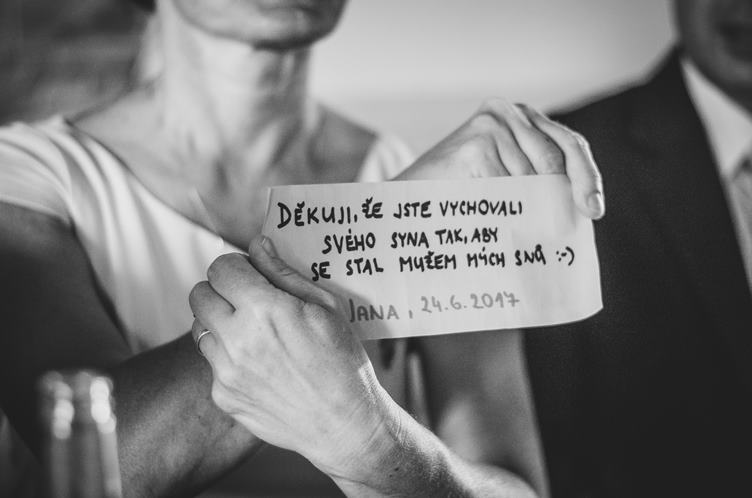 DĚKUJI, ŽE JSTE VYCHOVALI
SVÉHO SYNA TAK, ABY
SE STAL MUŽEM MÝCH SNŮ :-)
JANA, 24.6.2017